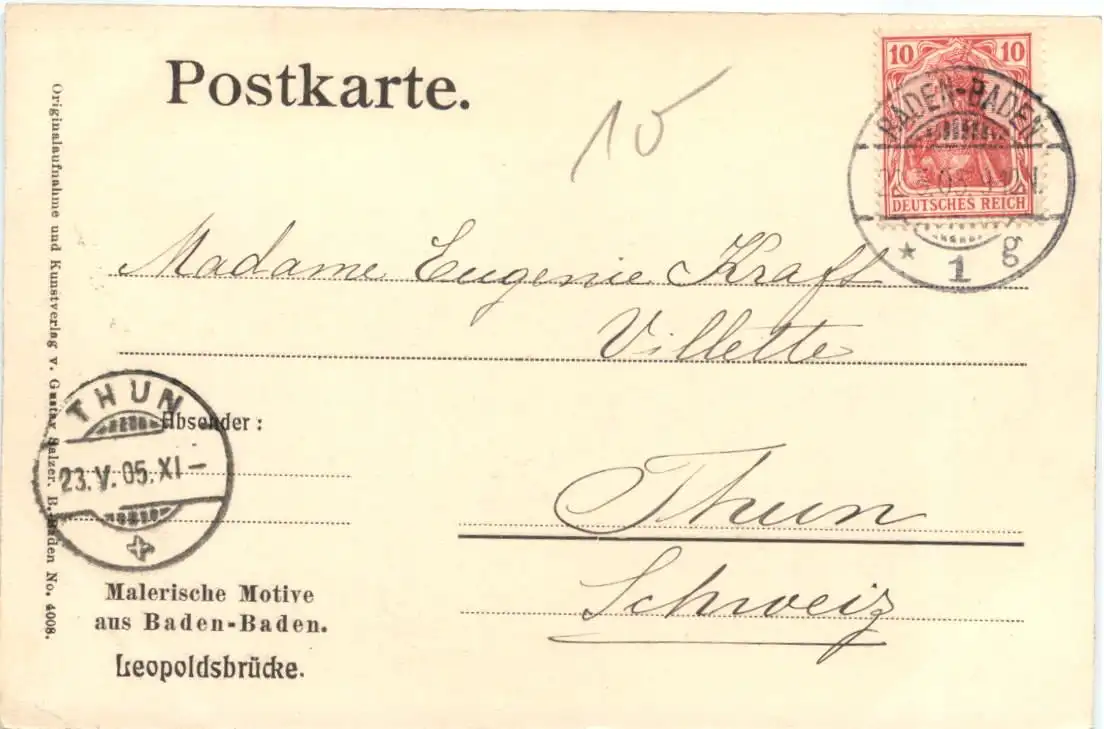 Postkarte.
10
10 10
DEUTSCHES REICH
BADEN-BADEN
* 1 g
Madame Eugenie Kraft
Villette
Thun
Schweiz
THUN
23.V.05.XI-
Absender:
Malerische Motive
aus Baden-Baden.
Leopoldsbrücke.
Originalaufnahme und Kunstverlag v. Gustav Salzer. B.-Baden No. 4008.